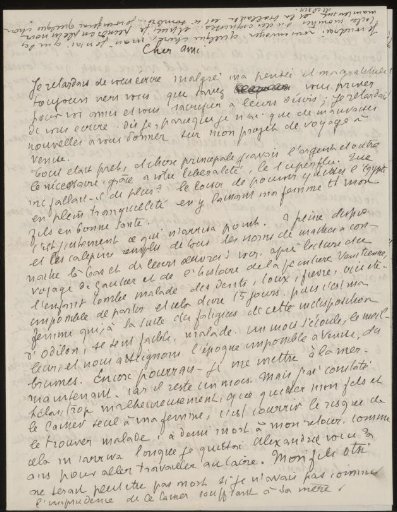 Cher ami
Je retardais de vous écrire malgré ma pensée et ma gratitude
toujours vers vous que savez vous priver
pour vos amis et vous sacrifier à leurs désirs, je retardais
de vous écrire dis-je parce que je n'ai que de mauvaises
nouvelles à vous donner sur mon projet de voyage à
Venise.
Tout était prêt, et chose principale j'avais l'argent et outre
le nécessaire, grâce à votre libéralité, le superflu. Que
me fallait-il de plus? le loisir de pouvoir quitter l'Egypte
en pleine tranquilité en y laissant ma femme et mon
fils en bonne santé.
C'est justement ce qui n'arriva point. A peine
et les calepins emplis de tous les noms de maîtres à con-
naître là-bas et de leurs œuvres à voir, après lecture du
voyage de Gautier et de l'histoire de la peinture Vénitienne,
l'enfant tombe malade des dents, toux, fièvre,
impossible de partir et cela dure 15 jours, puis c'est ma
femme qui, à la suite des fatigues de cette indisposition
d'Odilon, se sent faible, malade. Un mois s'écoule,
et nous atteignons l'époque impossible à Venise, des
brumes. Encore pourrais-je me mettre à la mer
maintenant, car il reste un mois. Mais j'ai constaté
hélas! trop malheureusement, que quitter mon fils et
le laisser seul à ma femme, c'est courrir le risque de
le trouver malade, à demi mort à mon retour, comme
cela m'arriva lorsque je quittai Alexandrie voici 3
ans pour aller travailler au Caire. Mon fils
ne serait peut être pas mort si je n'avais pas commis
l'imprudence de le laisser souffrant à sa mère.